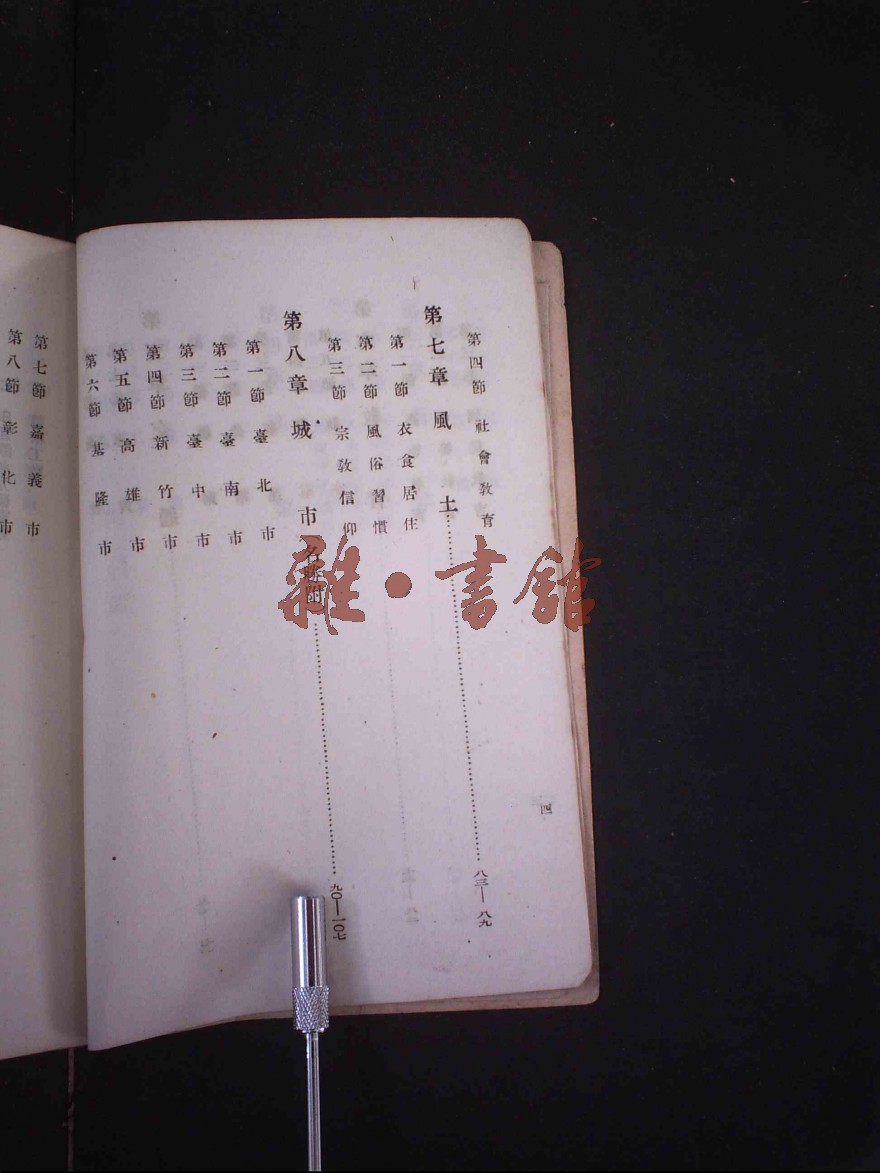 第四節 社會教育
第七章 風土……八三—八九
第一節 衣食居住
第二節 風俗習慣
第三節 宗教信仰
第八章 城市 名勝附……九〇—一〇七
第一節 臺北市
第二節 臺南市
第三節 臺中市
第四節 新竹市
第五節 高雄市
第六節 基隆市
四
第七節 嘉義市
第八節 彰化市
雜·書館